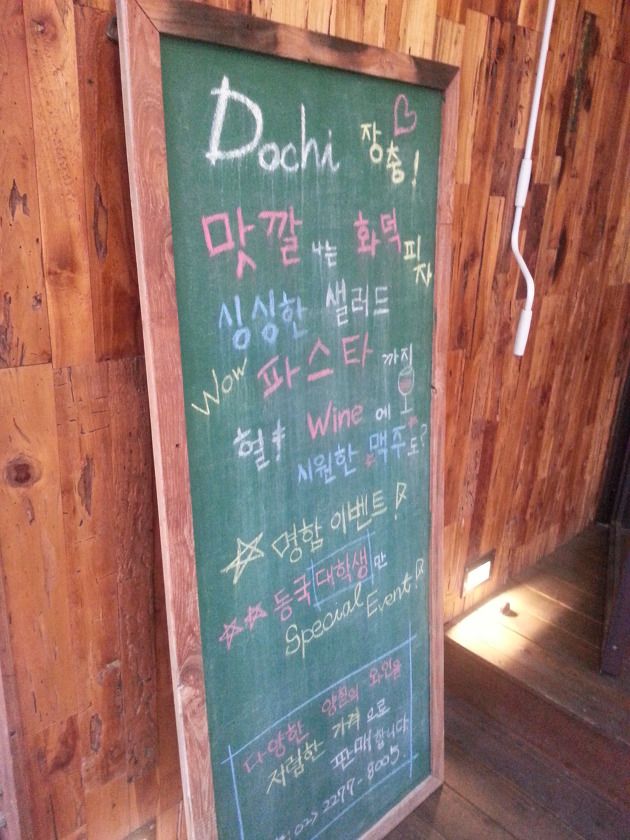 Dochi 장충!
맛깔 나는 화덕 피자
싱싱한 샐러드
Wow 파스타 까지
헐 Wine 에
시원한 맥주도?
명함 이벤트!
동국대학생만
Special Event!
다양한 양질의 와인을
저렴한 가격으로
판매합니다.
02) 2277-8005.